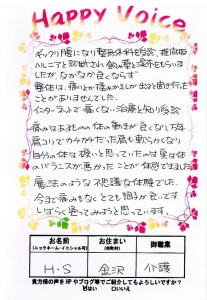 Happy Voice
ギックリ腰になり整形外科を受診、椎間板
ヘルニアと診断され飲み薬と湿布をもらいま
したが、なかなか良くならず
整体は、痛いとか怖いとか
ことがありませんでした。
インターネットで痛くない治療と知り受診
痛みはあるものの体の動きが良くなり、万年
肩コリでカチカチだった肩も軟らかくなり
自分の体は硬いと思っていたのは実は体
のバランスが悪かったことが体感できました
魔法のような不思議な体験でした。
今まで痛みもなくとても調子が良いです
しばらく通ってみようと思っています。
お名前
(ニックネーム・イニシャル可)
お住まい
(市町村)
御職業
H・S
金沢
介護
貴方様の声をHPやブログ等でご紹介してもよろしいですか？
はい
いいえ